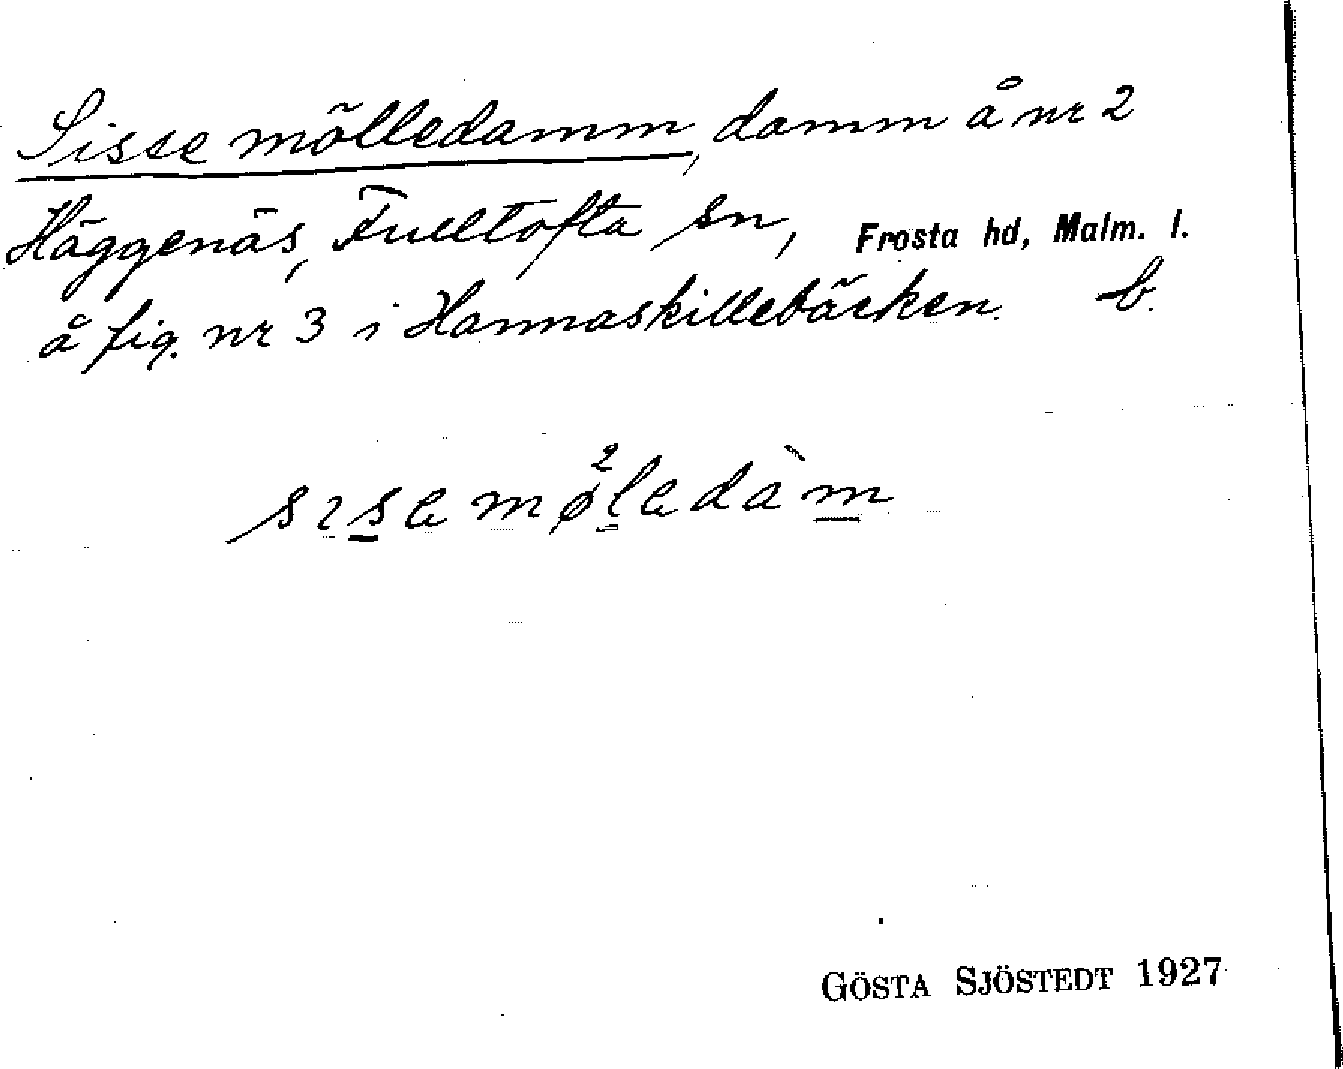 Sisse mölledamm, damm å nr 2
Häggenäs, Fulltofta sn, Frosta hd, Malm. l.
å fig. nr 3 i Hannaskillebäcken. b.
GÖSTA SJÖSTEDT 1927